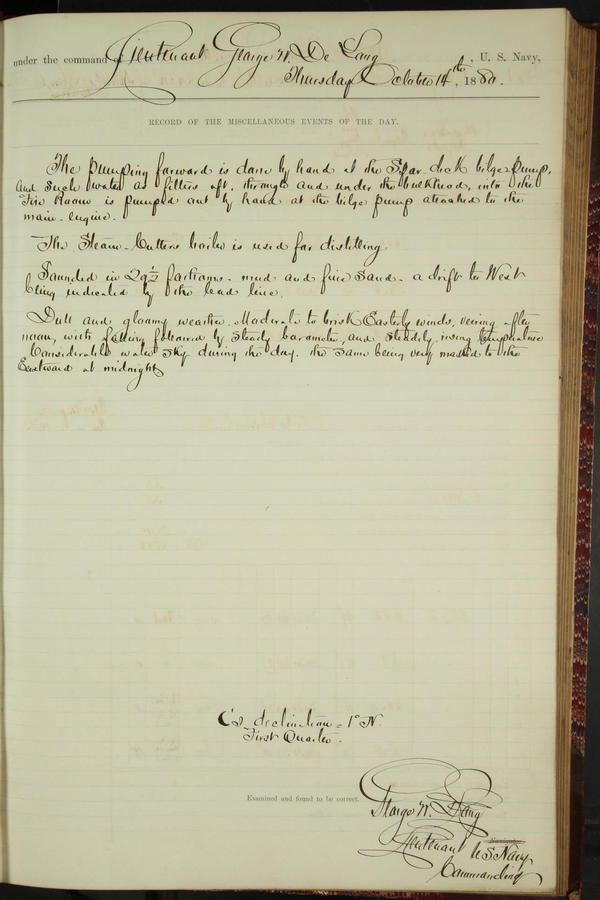 under the command of Lieutenant George W. De Long, U. S. Navy,
Thursday October 14th, 1880.
RECORD OF THE MISCELLANEOUS EVENTS OF THE DAY.
The pumping forward is done by hand at the Spar-deck bilge pump,
and such water as filters aft, through and under the bulkhead, into the
Fire Room is pumped out by hand at the bilge pump attached to the
main-engine.
The Steam-Cutters boiler is used for distilling.
Sounded in 29½ fathoms - mud and fine sand - a drift to West
being indicated by the lead line.
Dull and gloomy weather. Moderate to brisk Easterly winds, veering after
noon, with falling followed by steady barometer, and steadily rising temperature
Considerable water sky during the day. the same being very marked to the
Eastward at midnight
declination = 1° N.
First Quarter.
Examined and found to be correct.
George W. De Long
Lieutenant U.S. Navy
Navigator.
Commanding